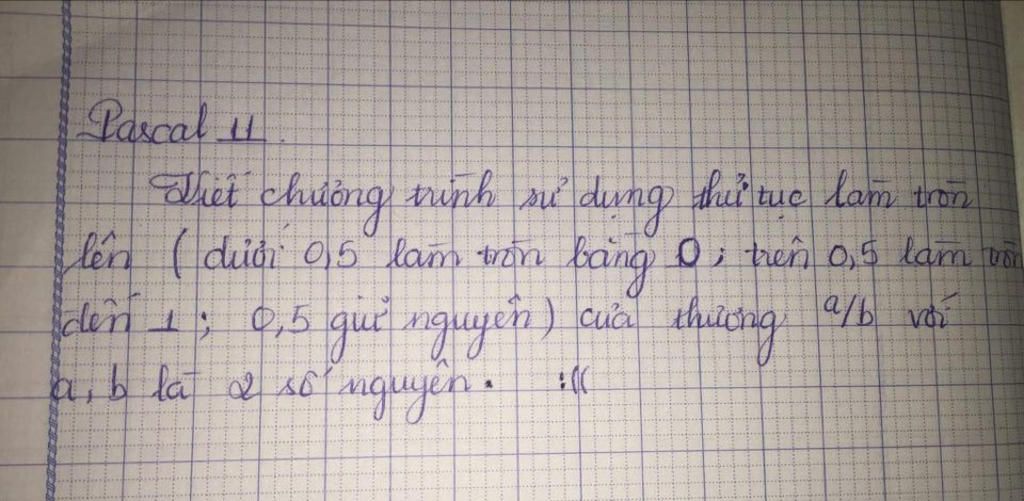 Pascal 11.
Viết chương trình sử dụng thủ tục làm tròn
lên ( dưới 0,5 làm tròn bằng 0 ; trên 0,5 làm tròn
đến 1 ; 0,5 giữ nguyên ) của thương a/b với
a, b là 2 số nguyên. :((